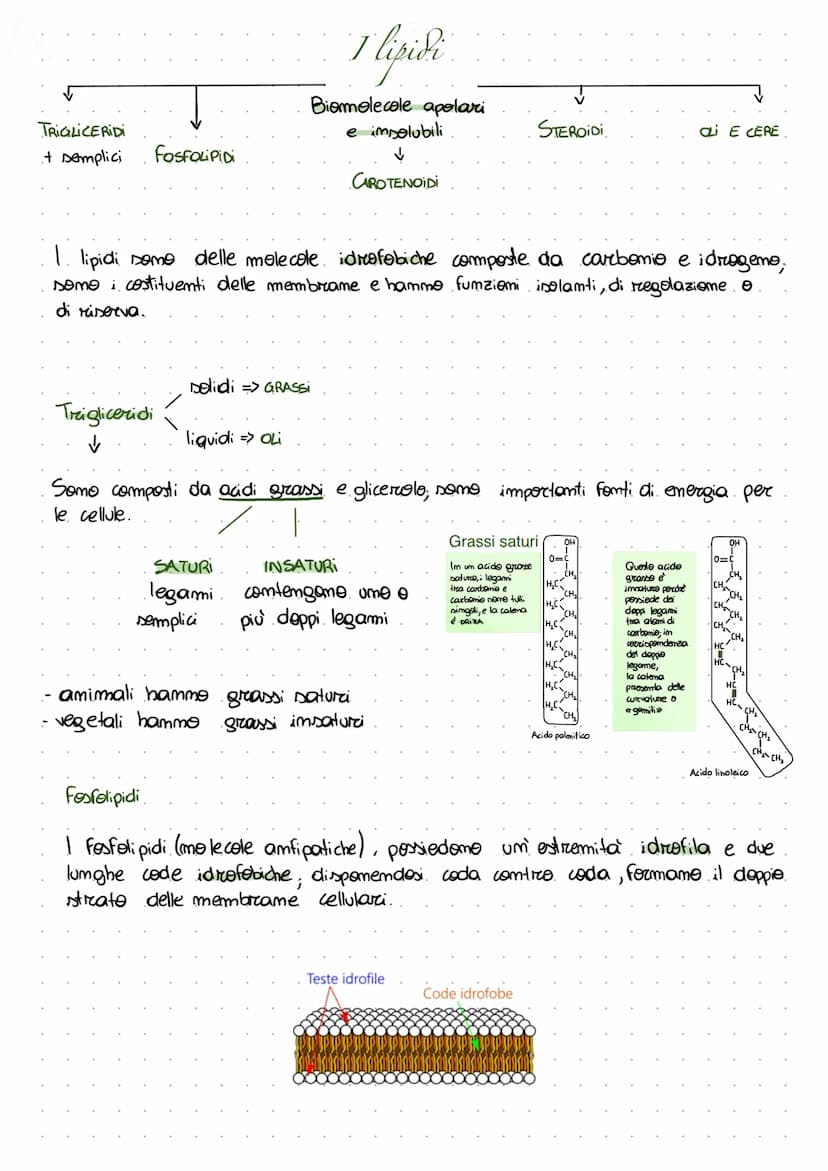 I lipidi
Biomolecole apolari
e insolubili
TRIGLICERIDI
+ semplici
FOSFOLIPIDI
CAROTENOIDI
STEROIDI
OLI E CERE
I lipidi sono delle molecole idrofobiche composte da carbonio e idrogeno,
sono i costituenti delle membrane e hanno funzioni isolanti, di regolazione e
di riserva.
Trigliceridi
solidi => GRASSI
liquidi => OLI
Sono composti da acidi grassi e glicerolo, sono importanti fonti di energia per
le cellule.
SATURI
legami
semplici
INSATURI
contengono uno o
più doppi legami
- animali hanno grassi saturi
- vegetali hanno grassi insaturi
Grassi saturi
In un acido grasso
saturo, i legami
tra carbonio e
carbonio sono tutti
singoli, e la catena
è DRITTA
OH
O=C
CH₂
H₂C
CH₂
H₂C
CH₂
H₂C
CH₂
H₂C
CH₂
H₂C
CH₂
H₂C
CH₂
H₂C
CH₃
Acido palmitico
Questo acido
grasso è
insaturo perché
possiede dei
doppi legami
tra atomi di
carbonio; in
corrispondenza
del doppio
legame,
la catena
presenta delle
curvature o
«gomiti»
OH
O=C
CH₂
CH₂
CH₂
CH₂
CH₂
CH₂
CH₂
HC
HC
CH₂
HC
HC
CH₂
CH₂
CH₂
CH₂
CH₃
Acido linoleico
Fosfolipidi
I fosfolipidi (molecole anfipatiche), possiedono un'estremità idrofila e due
lunghe code idrofobiche; disponendosi coda contro coda, formano il doppio
strato delle membrane cellulari.
Teste idrofile
Code idrofobe